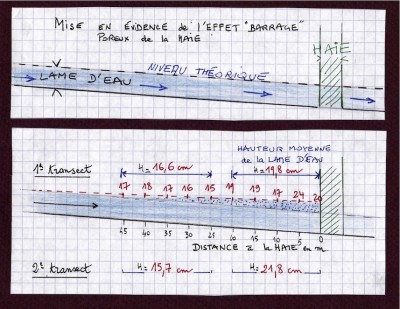 MISE EN ÉVIDENCE de L'EFFET "BARRAGE"
POREUX de la HAIE
HAIE
NIVEAU THÉORIQUE
LAME D'EAU
HAUTEUR MOYENNE
de la LAME D'EAU
1er transect
H = 16,6 cm
H = 19,8 cm
17 18 17 16 15 19 19 17 24 20
45 40 35 30 25 20 15 10 5 0
DISTANCE à la HAIE en m.
2e transect
H = 15,7 cm
H = 21,8 cm